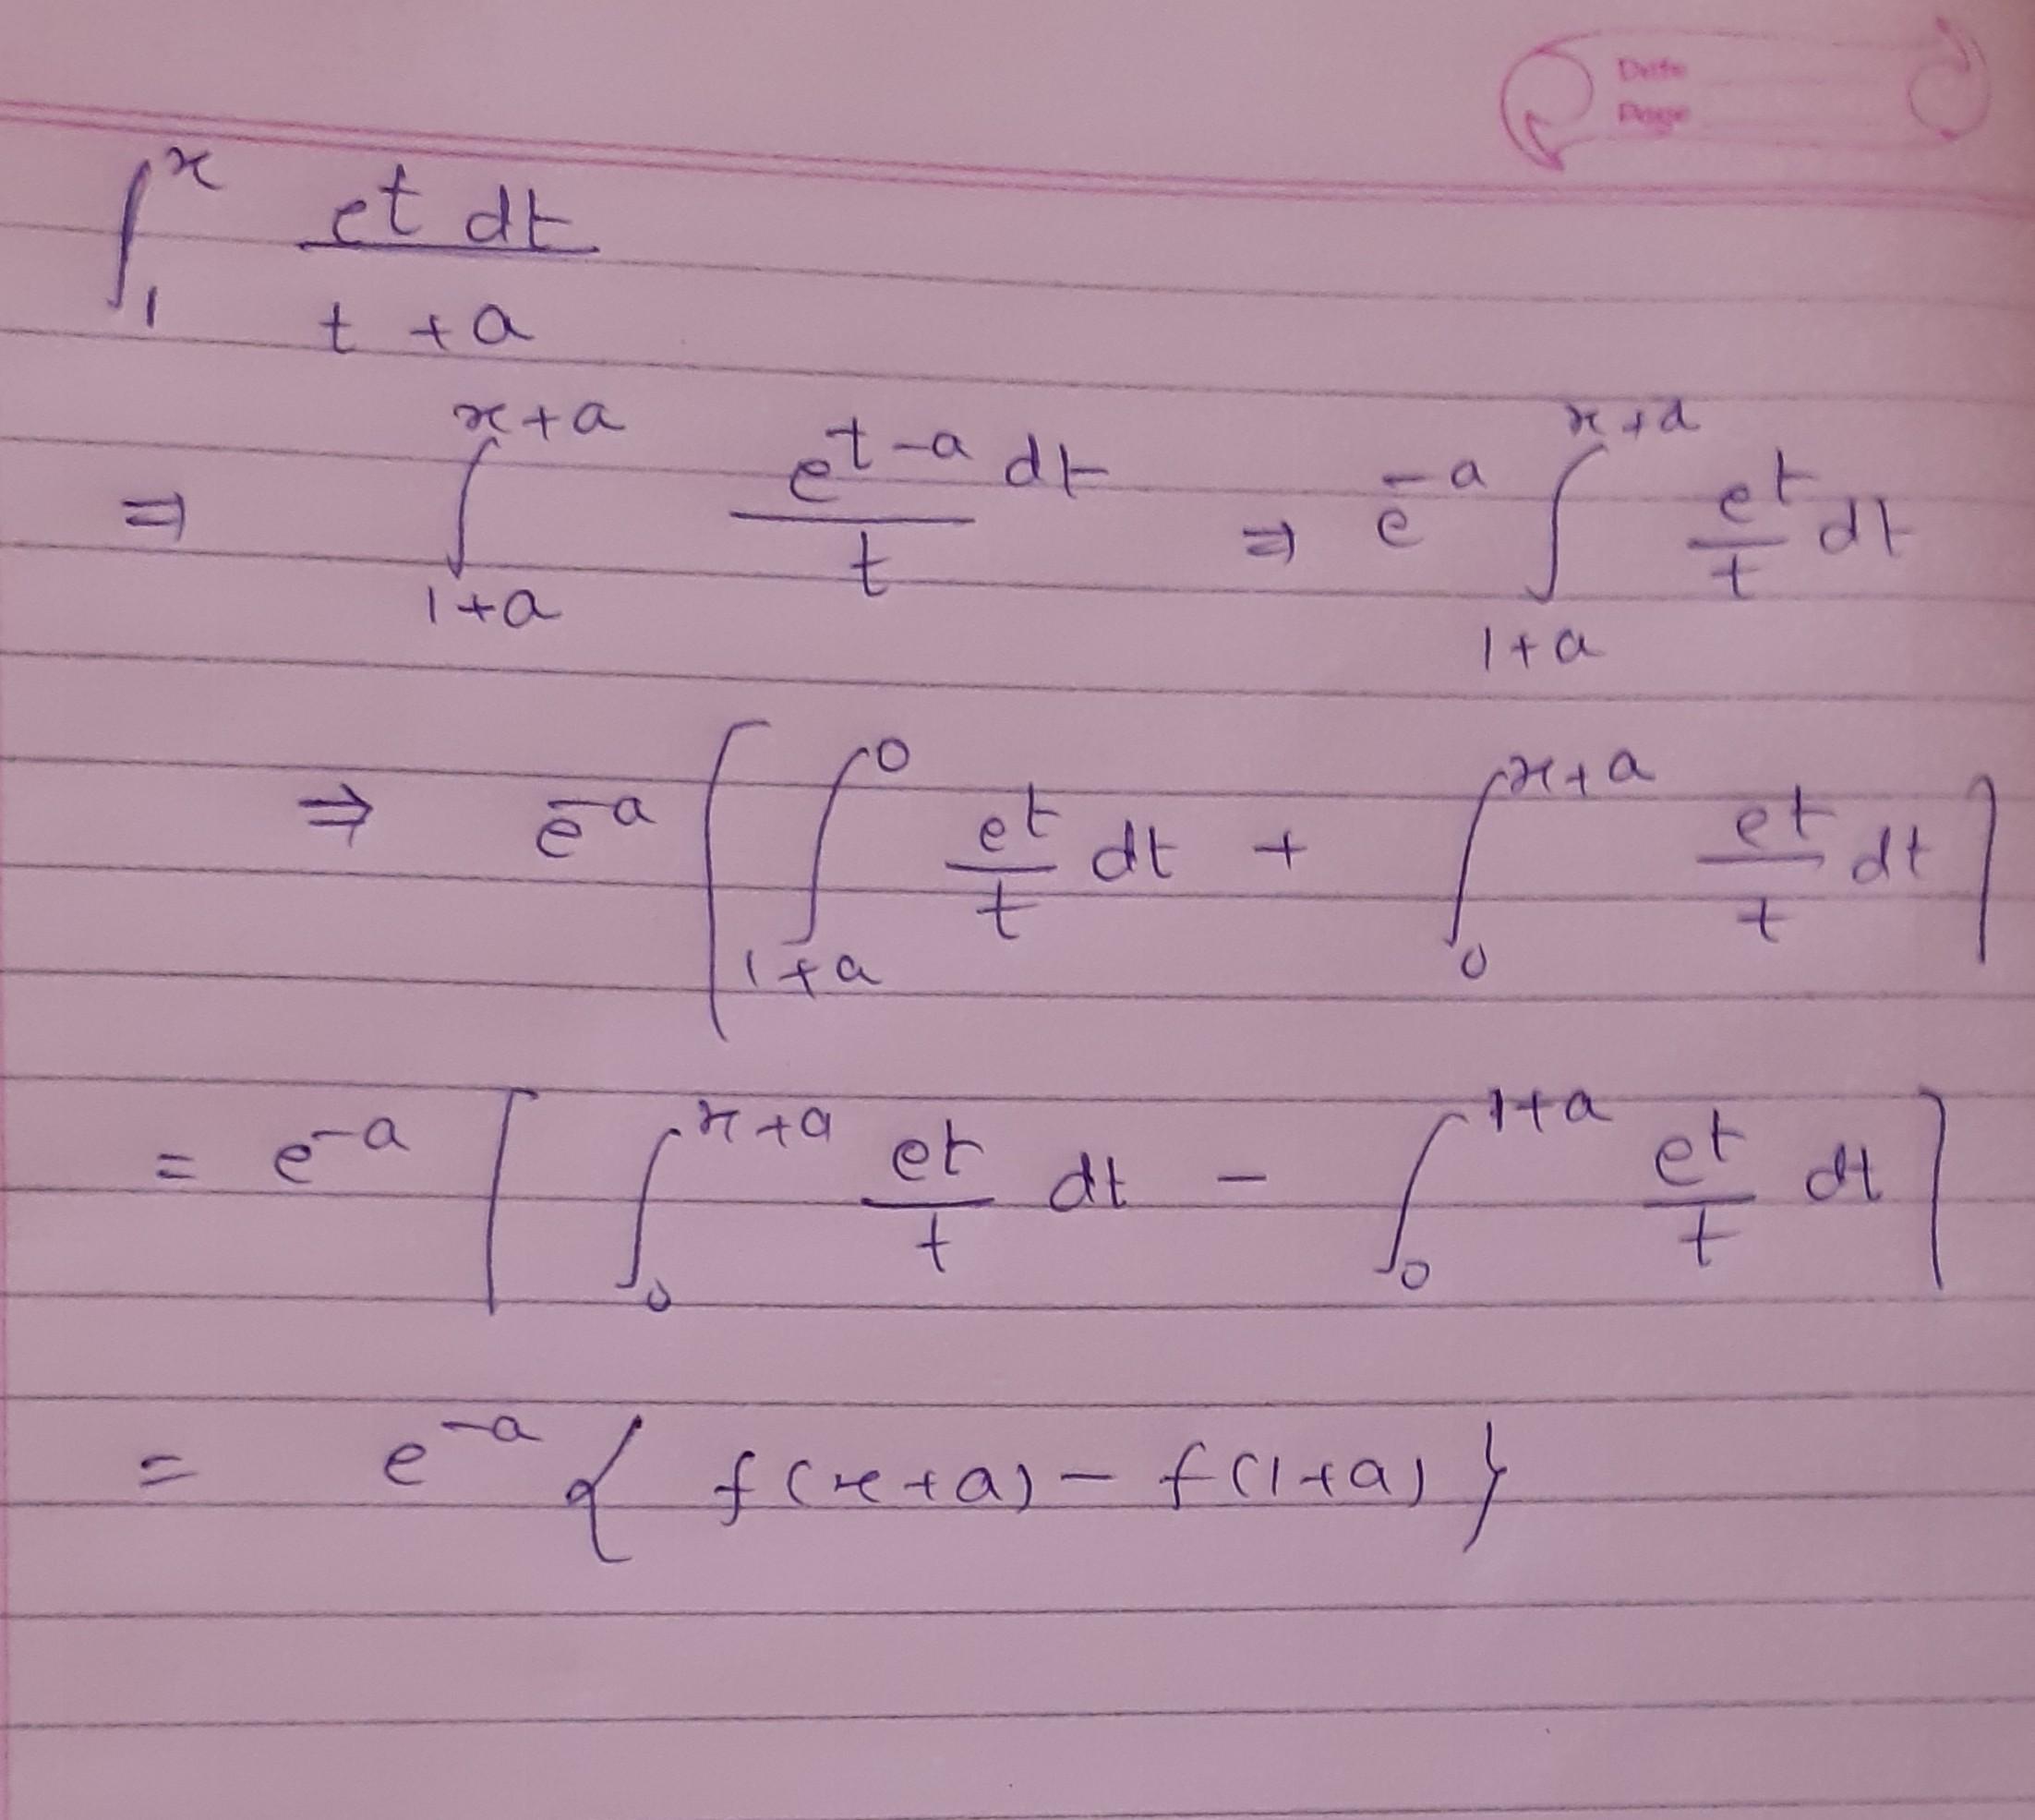 Date
Page
∫₁ˣ e^t dt / (t + a)
⇒ ∫_{1+a}^{x+a} e^{t-a} dt / t ⇒ e^{-a} ∫_{1+a}^{x+a} e^t/t dt
⇒ e^{-a} [ ∫_{1+a}^{0} e^t/t dt + ∫_{0}^{x+a} e^t/t dt ]
= e^{-a} [ ∫_{0}^{x+a} e^t/t dt - ∫_{0}^{1+a} e^t/t dt ]
= e^{-a} { f(x+a) - f(1+a) }